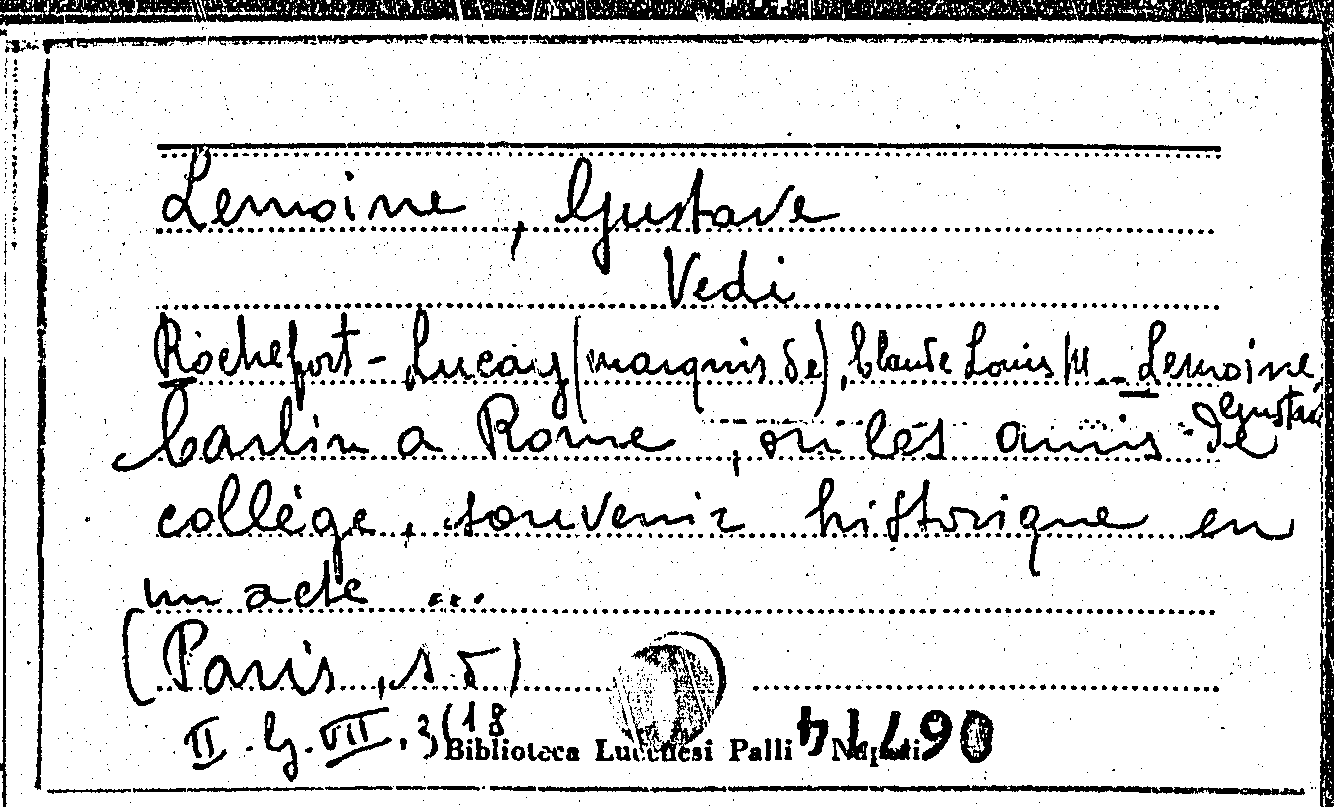 Lemoine, Gustave
Vedi
Rochefort-Luçay (marquis de), Claude Louis M - Lemoine,
Gustave
Carlin a Rome, ou les amis de
collège, souvenir historique en
un acte ...
(Paris, s.d)
II. G. VII. 3(18
Biblioteca Lucchesi Palli - Napoli